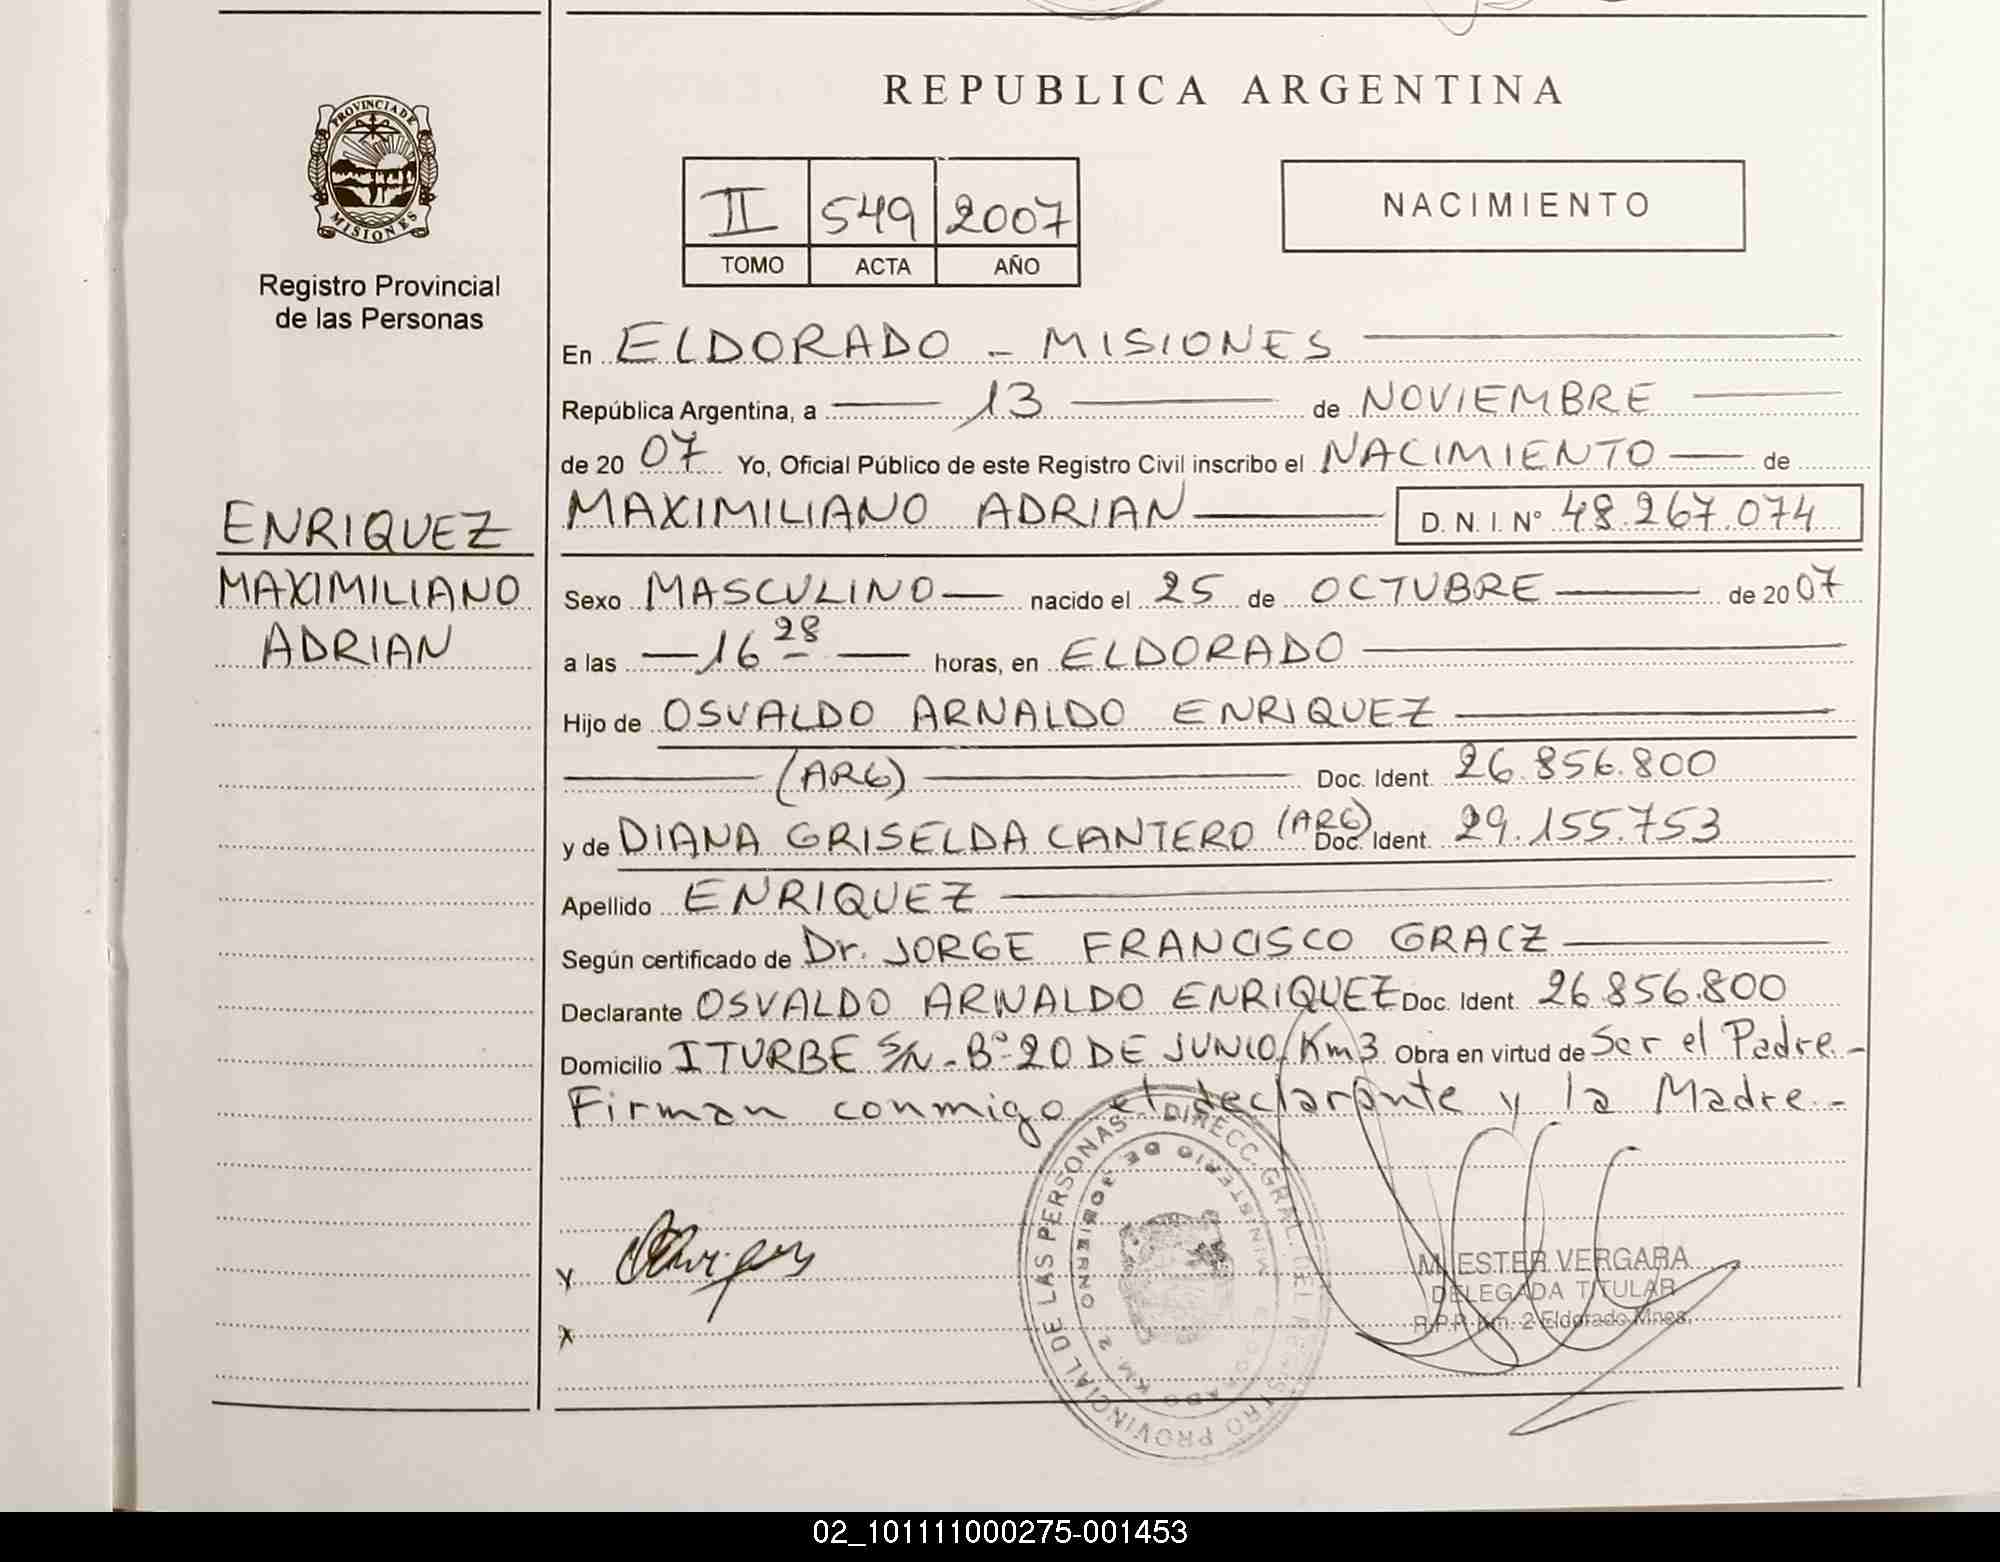 PROVINCIA DE
MISIONES
Registro Provincial
de las Personas
ENRIQUEZ
MAXIMILIANO
ADRIAN
REPUBLICA ARGENTINA
II 549 2007
TOMO ACTA AÑO
NACIMIENTO
En ELDORADO - MISIONES
República Argentina, a 13 de NOVIEMBRE
de 2007 Yo, Oficial Público de este Registro Civil inscribo el NACIMIENTO de
MAXIMILIANO ADRIAN D. N. I. Nº 48.267.074
Sexo MASCULINO nacido el 25 de OCTUBRE de 2007
a las 16 28 horas, en ELDORADO
Hijo de OSVALDO ARNALDO ENRIQUEZ
(ARG) Doc. Ident. 26.856.800
y de DIANA GRISELDA CANTERO (ARG) Doc. Ident. 29.155.753
Apellido ENRIQUEZ
Según certificado de Dr. JORGE FRANCISCO GRACZ
Declarante OSVALDO ARNALDO ENRIQUEZ Doc. Ident. 26.856.800
Domicilio ITURBE S/N - Bº 20 DE JUNIO / Km 3 Obra en virtud de Ser el Padre.-
Firman conmigo el declarante y la Madre.-
DIRECC. GRAL. DEL REGISTRO PROVINCIAL DE LAS PERSONAS
MINISTERIO DE GOBIERNO
ELDORADO KM. 2
M. ESTER VERGARA
DELEGADA TITULAR
R.P.P. Km. 2 Eldorado Mnes.
02_101111000275-001453